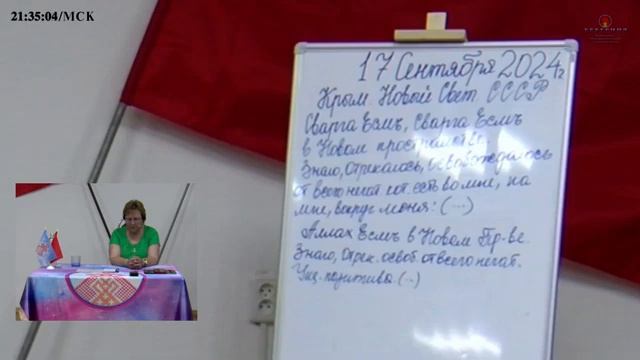 21:35:04/МСК
17 Сентября 2024г
Крым. Новый Свет. СССР
Сварга Есмъ, Сварга Есмъ
в Новом пространстве.
Знаю, Отрекаюсь, Освобождаюсь
от всего негат. кот. есть во мне, на
мне, вокруг меня: (...)
Аллах Есмъ в Новом Пр-ве.
Знаю, Отрек. освоб. от всего негат.
позитивы (...)